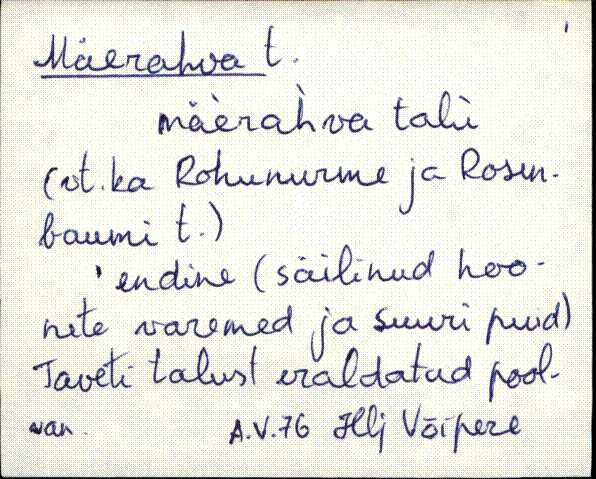 Mäerahva t.
mäèrah̀va talù
(vt. ka Rohunurme ja Rosen-
baumi t.)
' endine (säilinud hoo-
nete varemed ja suuri puid)
Taveti talust eraldatud pool-
A.V.76 Hlj Võipere